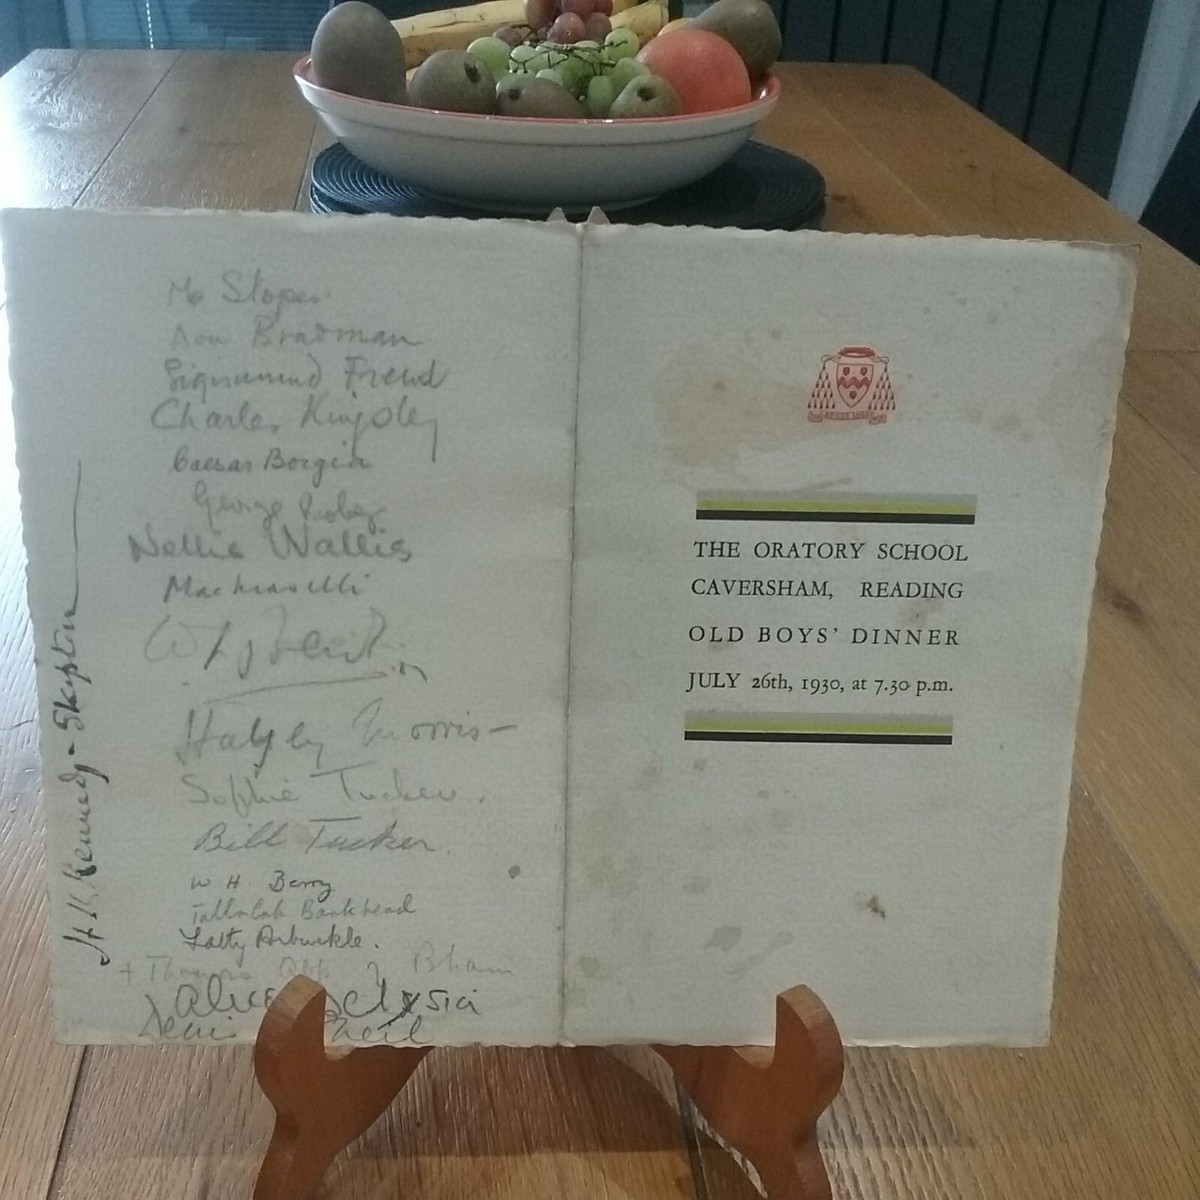 Don Bradman
Sigmund Freud
Charles Kingsley
Caesar Borgia
George Robey
Nellie Wallis
Machiavelli
Halsey Morris
Sophie Tucker.
Bill Tucker.
W H Berry
Tallulah Bankhead
Fatty Arbuckle.
+ Thomas
Alice Delysia
Denis Neil
Kennedy - Skipton
THE ORATORY SCHOOL
CAVERSHAM, READING
OLD BOYS' DINNER
JULY 26th, 1930, at 7.30 p.m.